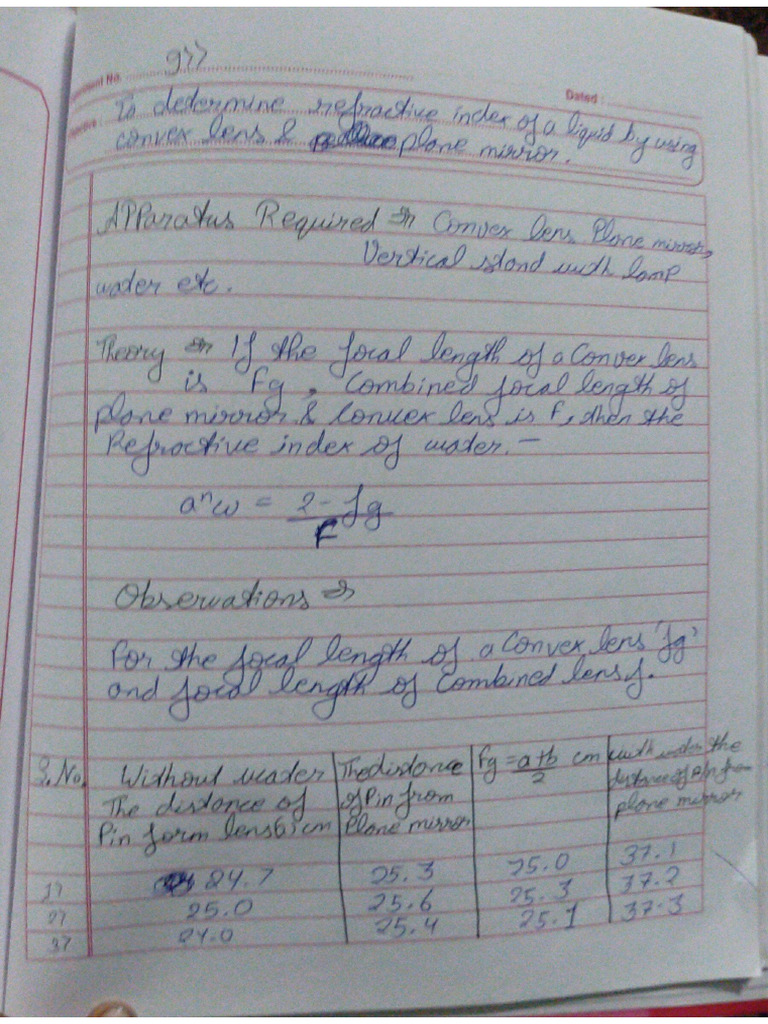 ment No. 9⇒
Dated :
ective : To determine refractive index of a liquid by using
convex lens & plane mirror.
Apparatus Required ⇒ Convex lens, Plane mirror,
Vertical stand with lamp
water etc.
Theory ⇒ If the focal length of a convex lens
is Fg, Combined focal length of
plane mirror & Convex lens is F, then the
Refractive index of water. —
anw = 2 - fg
F
Observations ⇒
For the focal length of a Convex lens 'fg'
and focal length of combined lens f.
S.No. Without water The distance Fg = a+b cm with water the
The distance of of Pin from 2 distance of Pin from
Pin form lens cm Plane mirror plane mirror
1⇒ 24.7 25.3 25.0 37.1
2⇒ 25.0 25.6 25.3 37.2
3⇒ 24.0 25.4 25.1 37.3